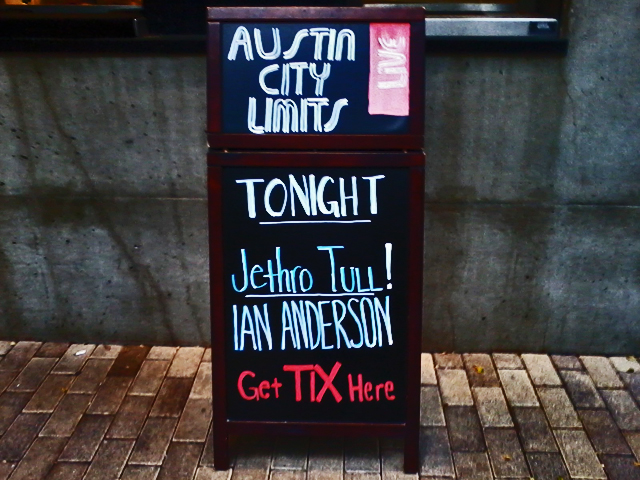 AUSTIN
CITY
LIMITS
LIVE
TONIGHT
Jethro Tull!
IAN ANDERSON
Get TIX Here